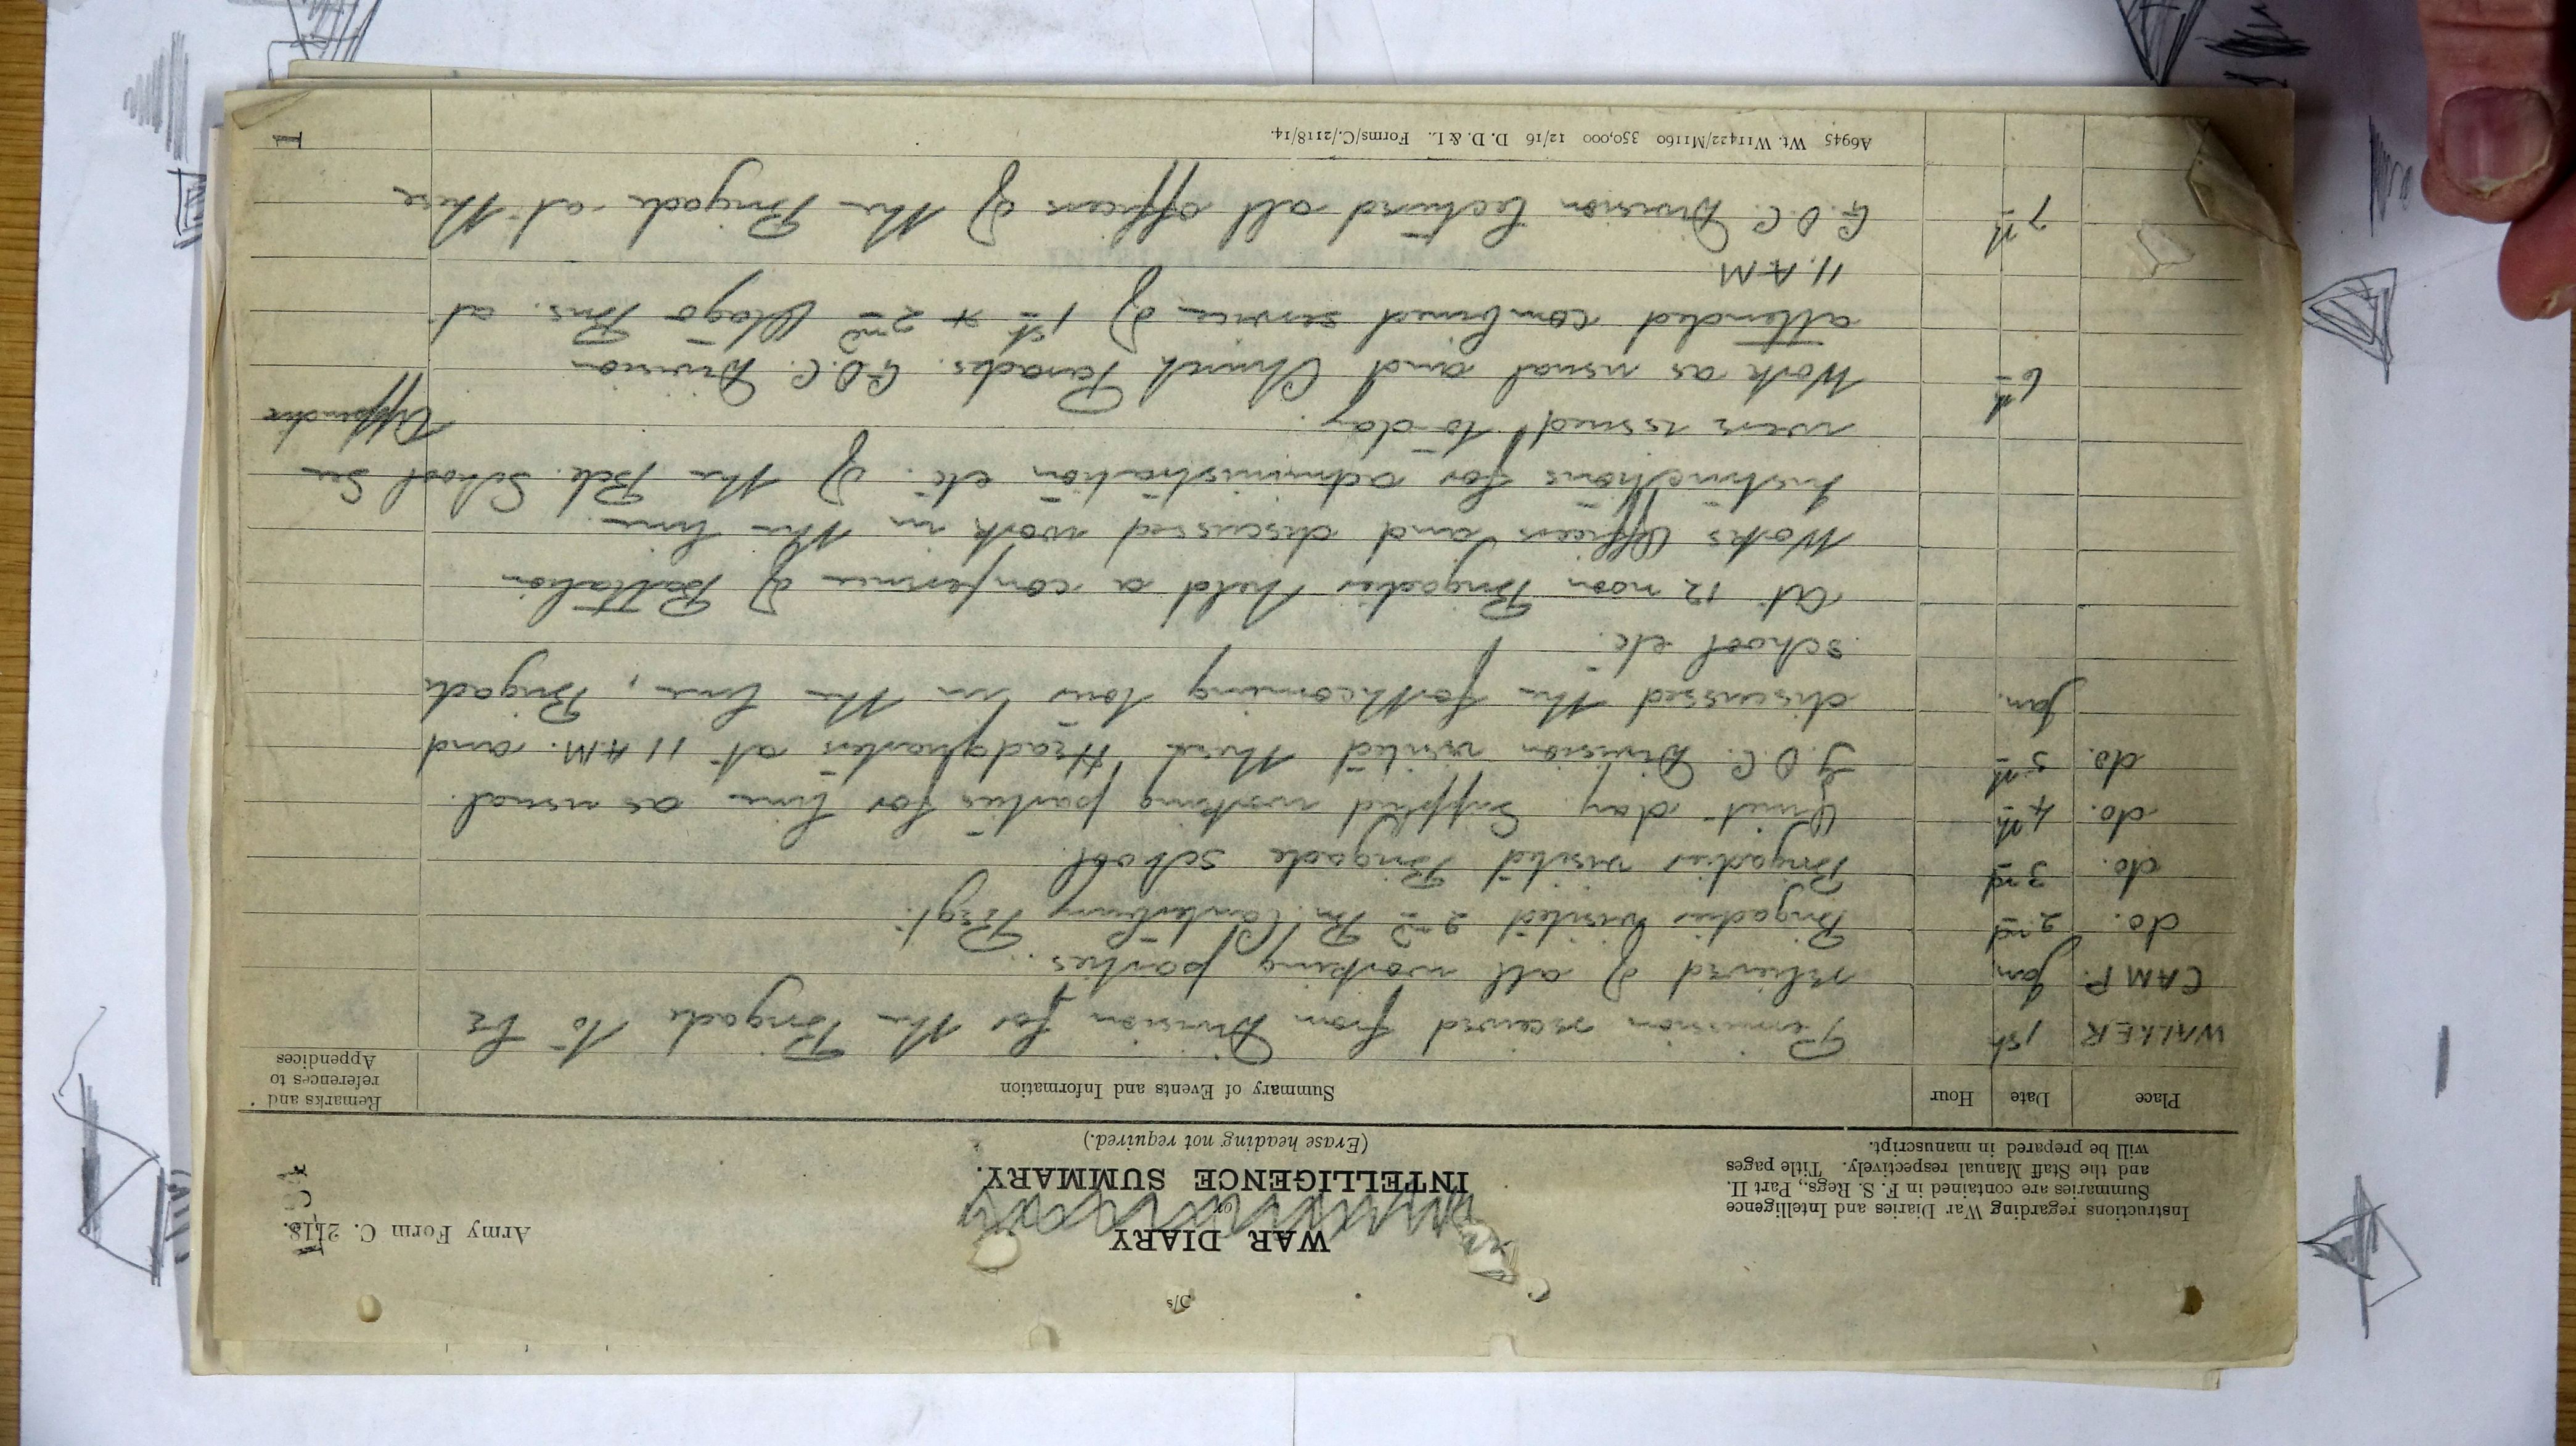 D/s
Army Form C. 2118.
WAR DIARY
or
INTELLIGENCE SUMMARY.
(Erase heading not required.)
Instructions regarding War Diaries and Intelligence
Summaries are contained in F. S. Regs., Part II.
and the Staff Manual respectively. Title pages
will be prepared in manuscript.
Place Date Hour Summary of Events and Information Remarks and references to Appendices
WALKER 1st Permission received from Division for the Brigade to be
CAMP. Jan relieved of all working parties.
do. 2nd Brigadier visited 2nd Bn. Canterbury Regt.
do. 3rd Brigadier visited Brigade School.
do. 4th Quiet day. Supplied working parties for line as usual.
do. 5th G.O.C. Division visited these Headquarters at 11 A.M. and
Jan. discussed the forthcoming tour in the line, Brigade
School etc.
At 12 noon Brigadier held a conference of Battalion
Works Officers and discussed work in the line.
Instructions for administration etc. of the Bde. School See
were issued to-day. Appendix
6th Work as usual and Church Parades. G.O.C. Division
attended combined service of 1st & 2nd Otago Bns. at
11. AM
7th G.O.C. Division lectured all officers of the Brigade at these
A6945 Wt. W11422/M1160 350,000 12/16 D. D. & L. Forms/C./2118/14.